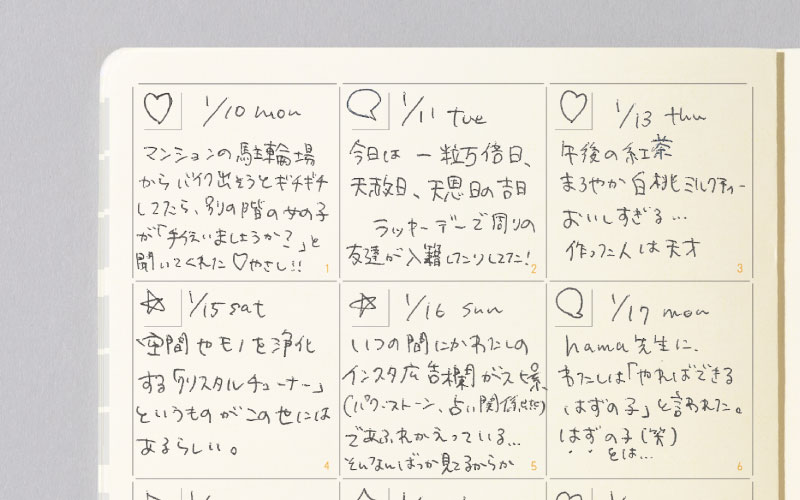 1/10 mon
マンションの駐輪場
からバイク出そうとギチギチ
してたら、別の階の女の子
が「手伝いましょうか?」と
聞いてくれた♡やさし!!
1
1/11 tue
今日は 一粒万倍日、
天赦日、天恩日の吉日
ラッキーデーで周りの
友達が入籍したりしてた!
2
1/13 thu
午後の紅茶
まろやか白桃ミルクティー
おいしすぎる…
作った人は天才
3
1/15 sat
空間やモノを浄化
する「クリスタルチューナー」
というものがこの世には
あるらしい。
4
1/16 sun
いつの間にかわたしの
インスタ広告欄がスピ系
(パワーストーン、占い関係etc)
であふれかえっている…
そんなんばっか見てるからか
5
1/17 mon
hama先生に、
わたしは「やればできる
はずの子」と言われた。
はずの子(笑)
とは…
6